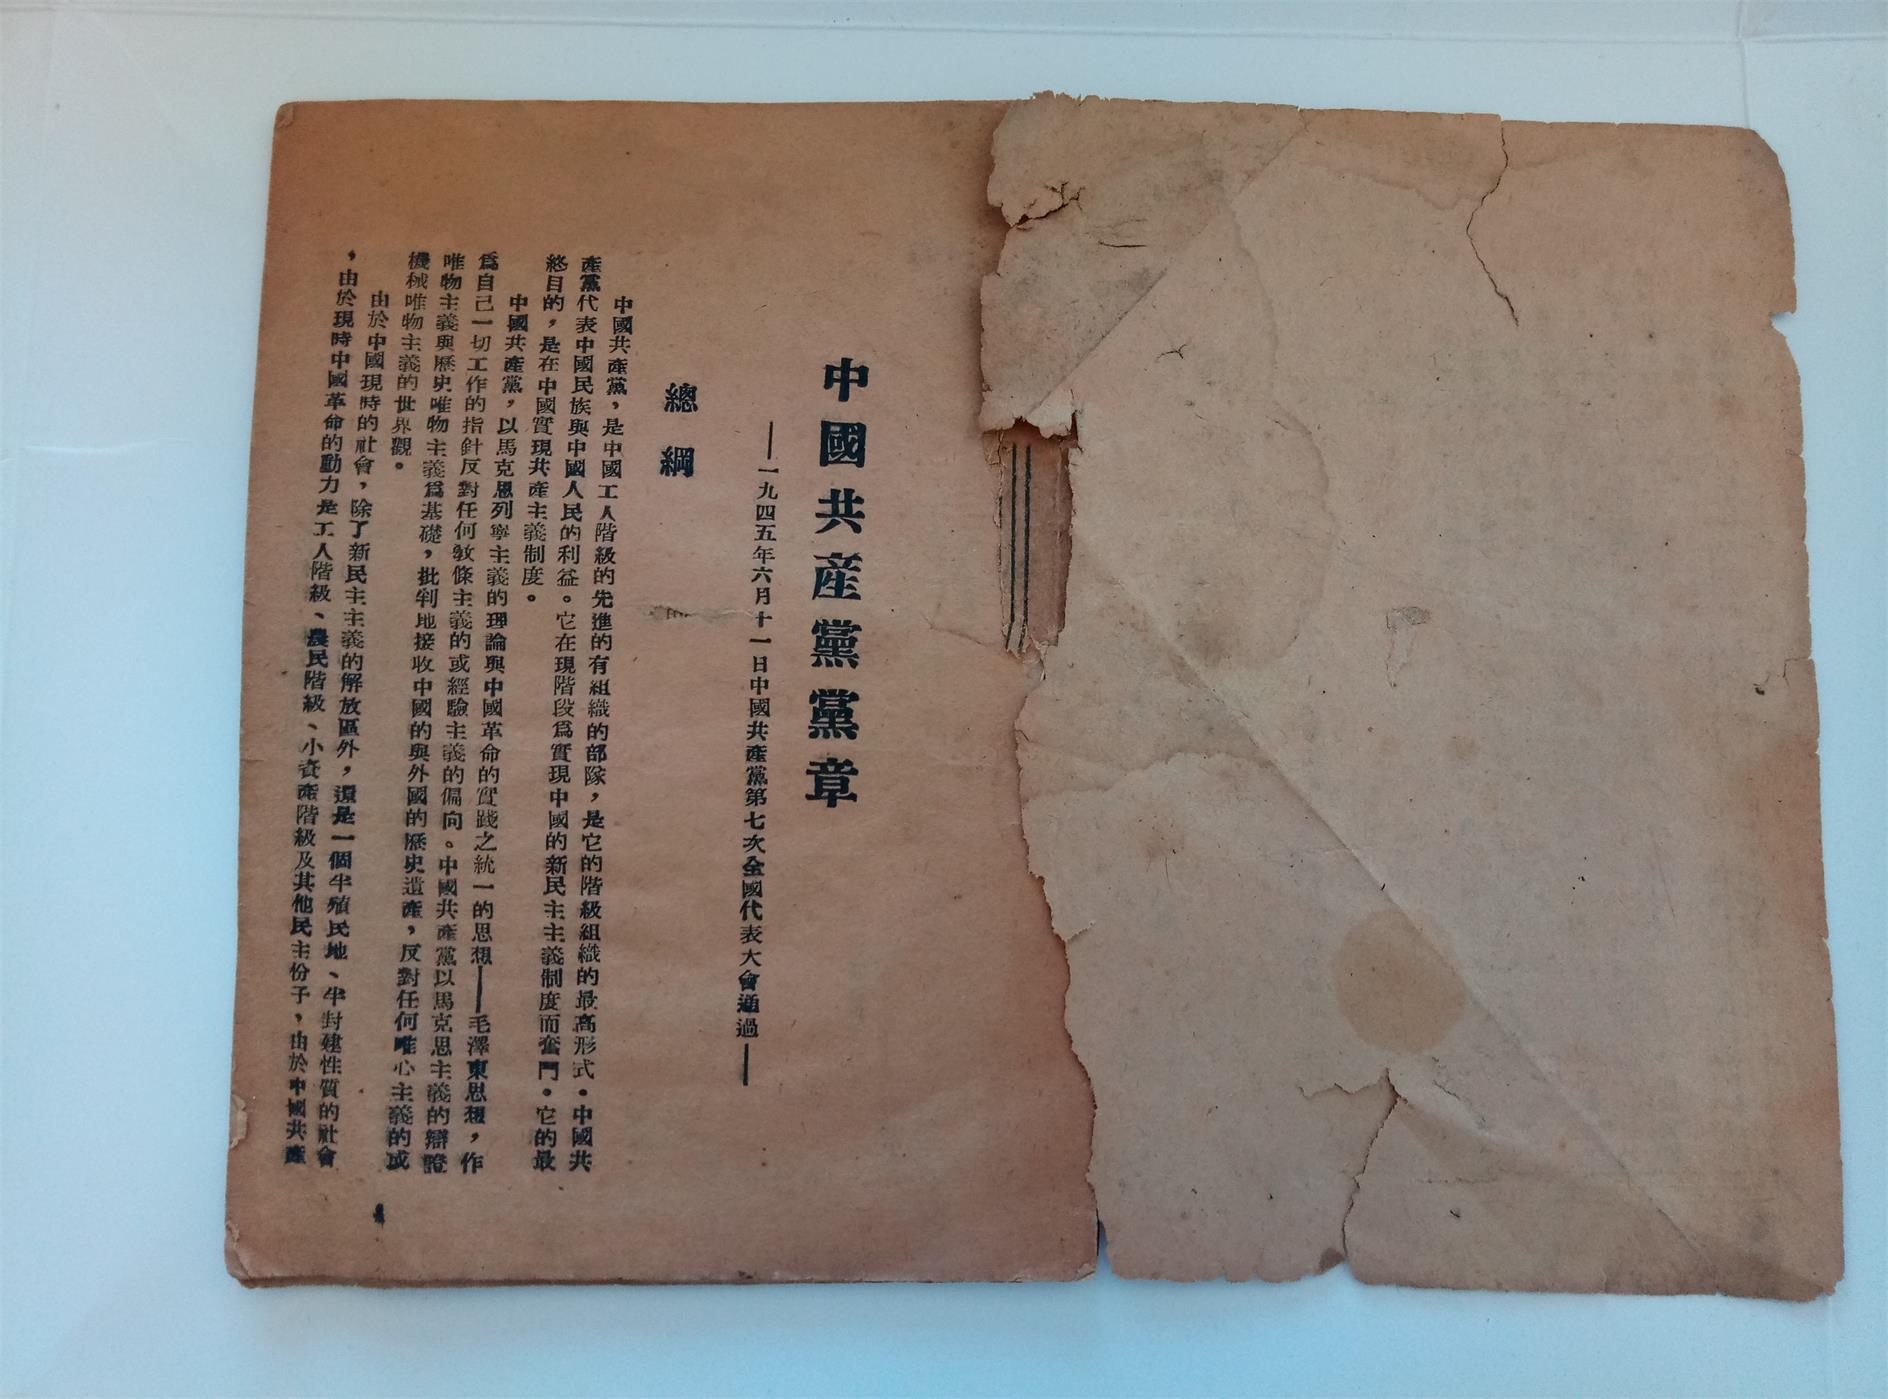 中國共產黨黨章
——一九四五年六月十一日中國共產黨第七次全國代表大會通過——
總綱
中國共產黨，是中國工人階級的先進的有組織的部隊，是它的階級組織的最高形式。中國共
產黨代表中國民族與中國人民的利益。它在現階段爲實現中國的新民主主義制度而奮鬥。它的最
終目的，是在中國實現共產主義制度。
中國共產黨，以馬克思列寧主義的理論與中國革命的實踐之統一的思想——毛澤東思想，作
爲自己一切工作的指針反對任何敎條主義的或經驗主義的偏向。中國共產黨以馬克思主義的辯證
唯物主義與歷史唯物主義爲基礎，批判地接收中國的與外國的歷史遺產，反對任何唯心主義的或
機械唯物主義的世界觀。
由於中國現時的社會，除了新民主主義的解放區外，還是一個半殖民地、半封建性質的社會
，由於現時中國革命的動力是工人階級、農民階級、小資產階級及其他民主份子，由於中國共產